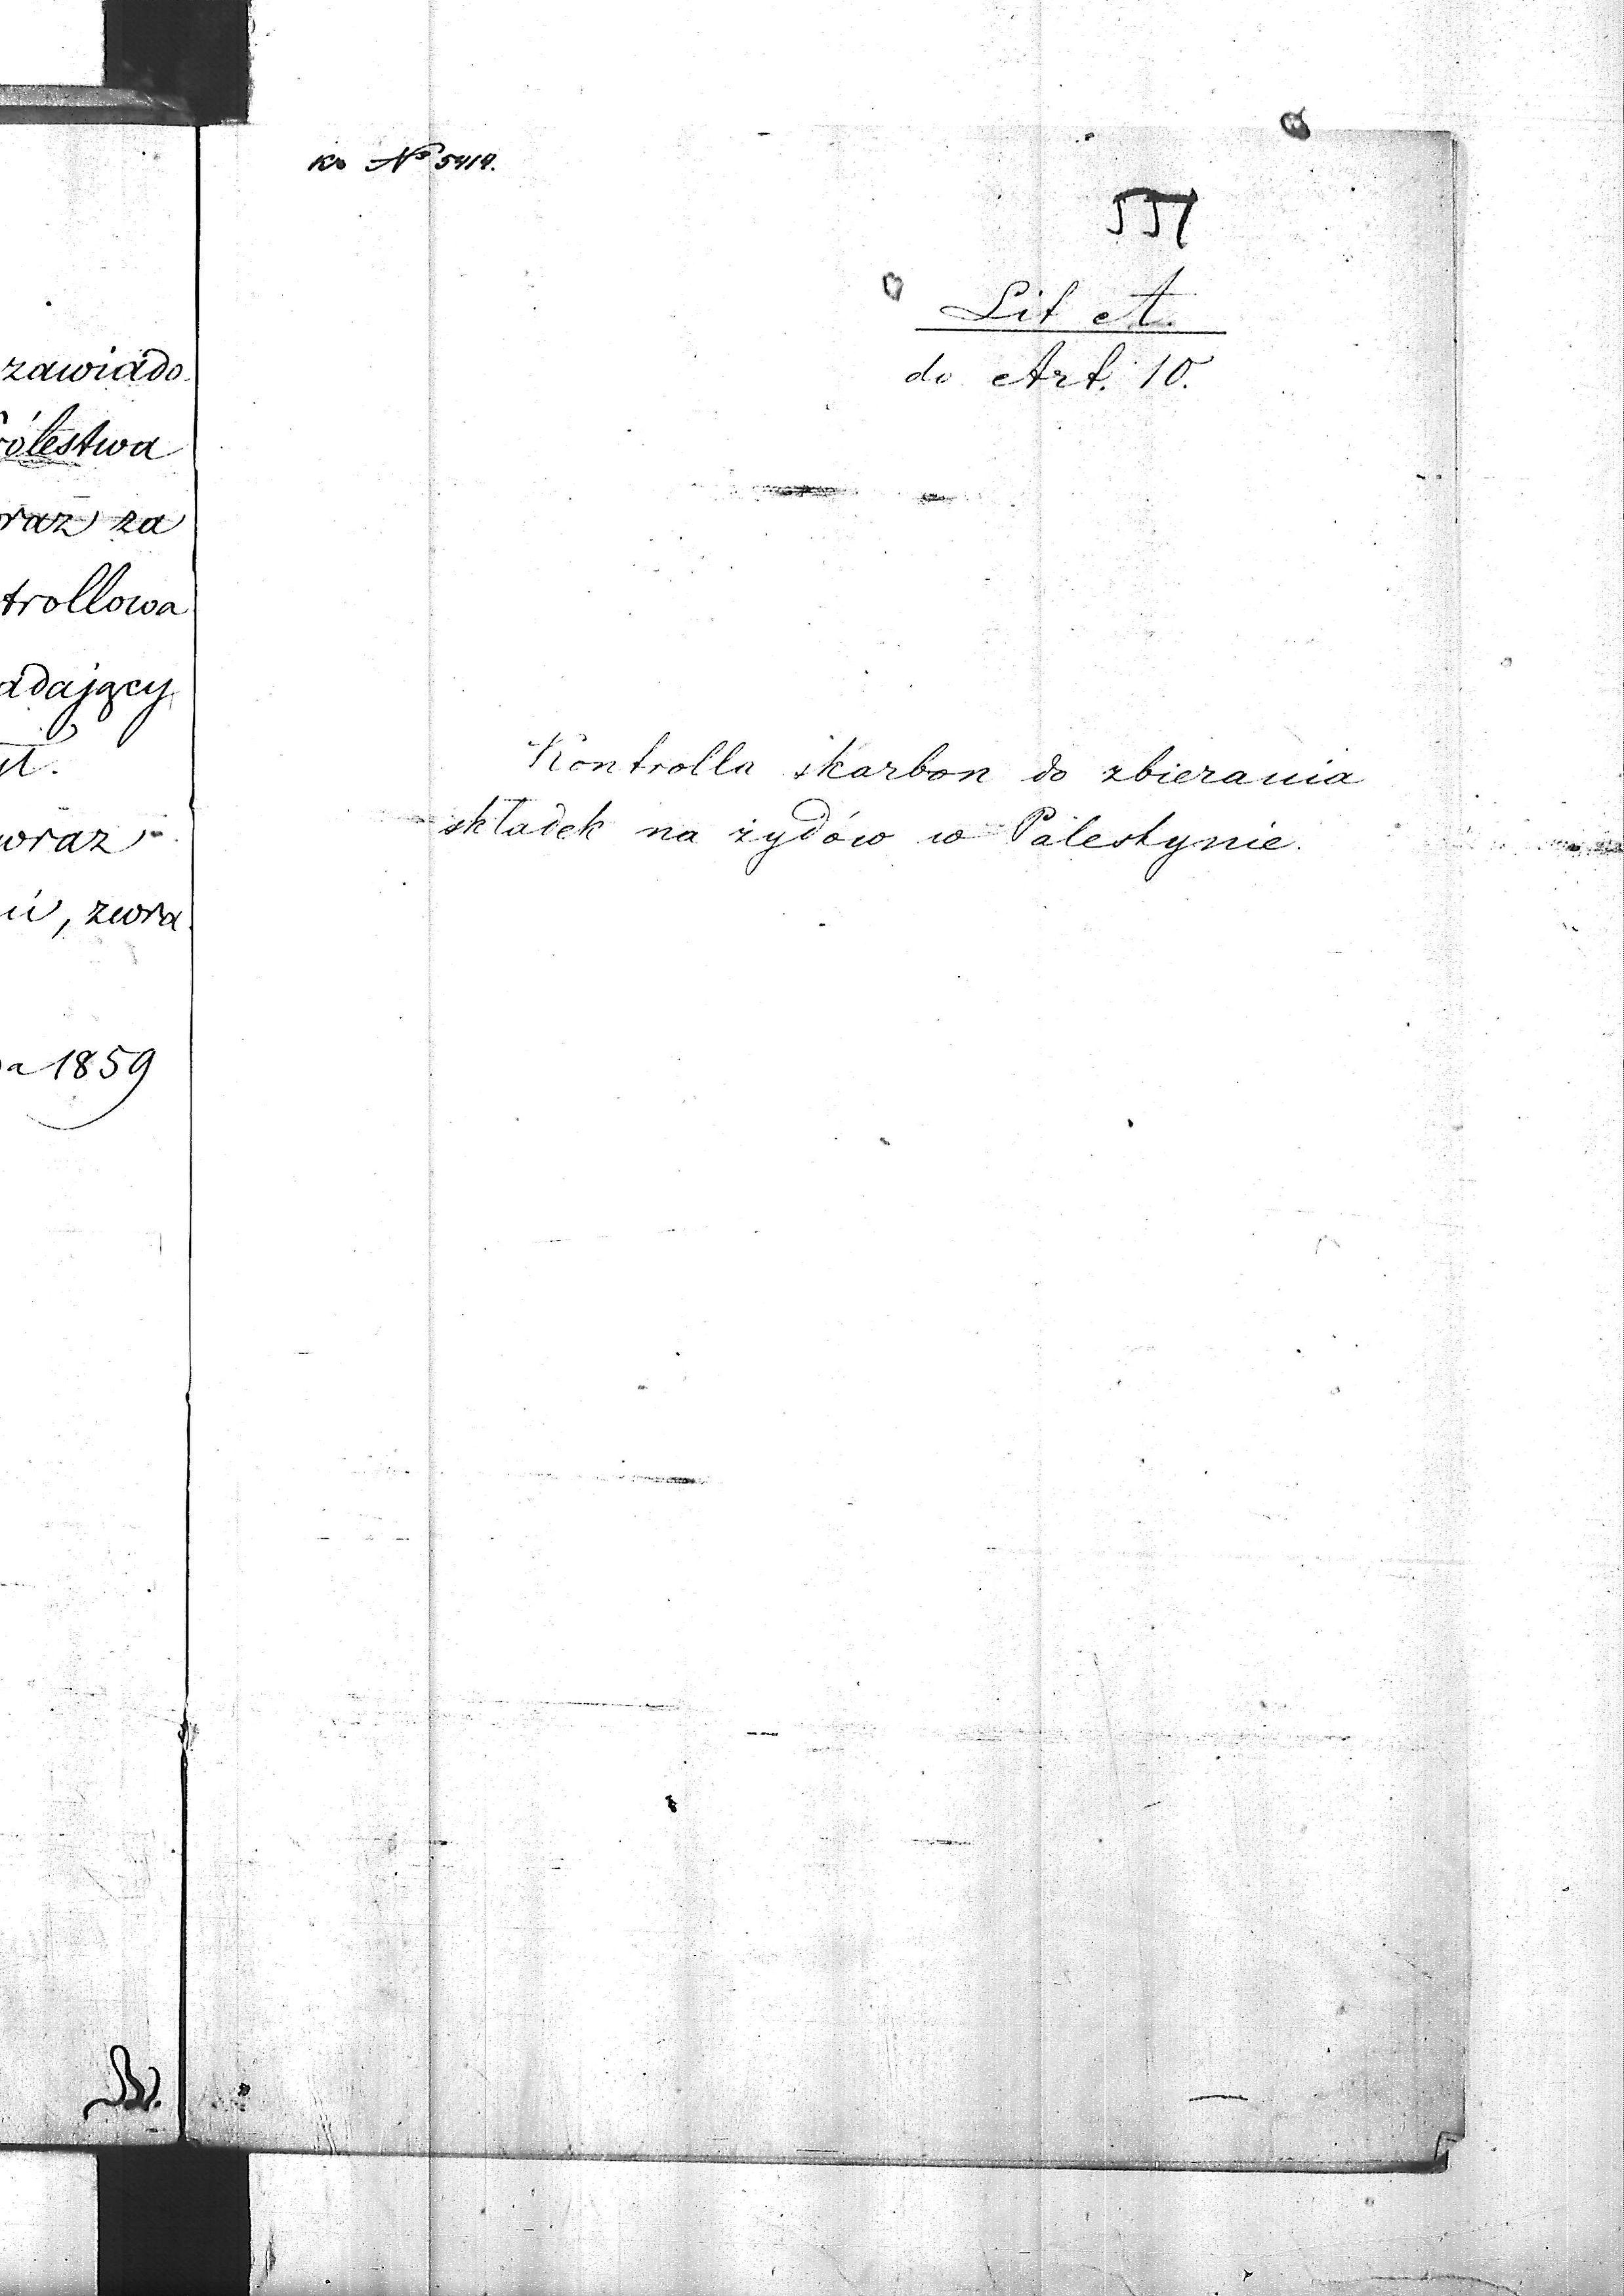 zawiado
rólestwa
oraz za
trollowa
adający
wraz
, zwra
a 1859
No 5414.
557
Lit A.
do Art. 10.
Kontrolla skarbon do zbierania
składek na żydów w Palestynie.